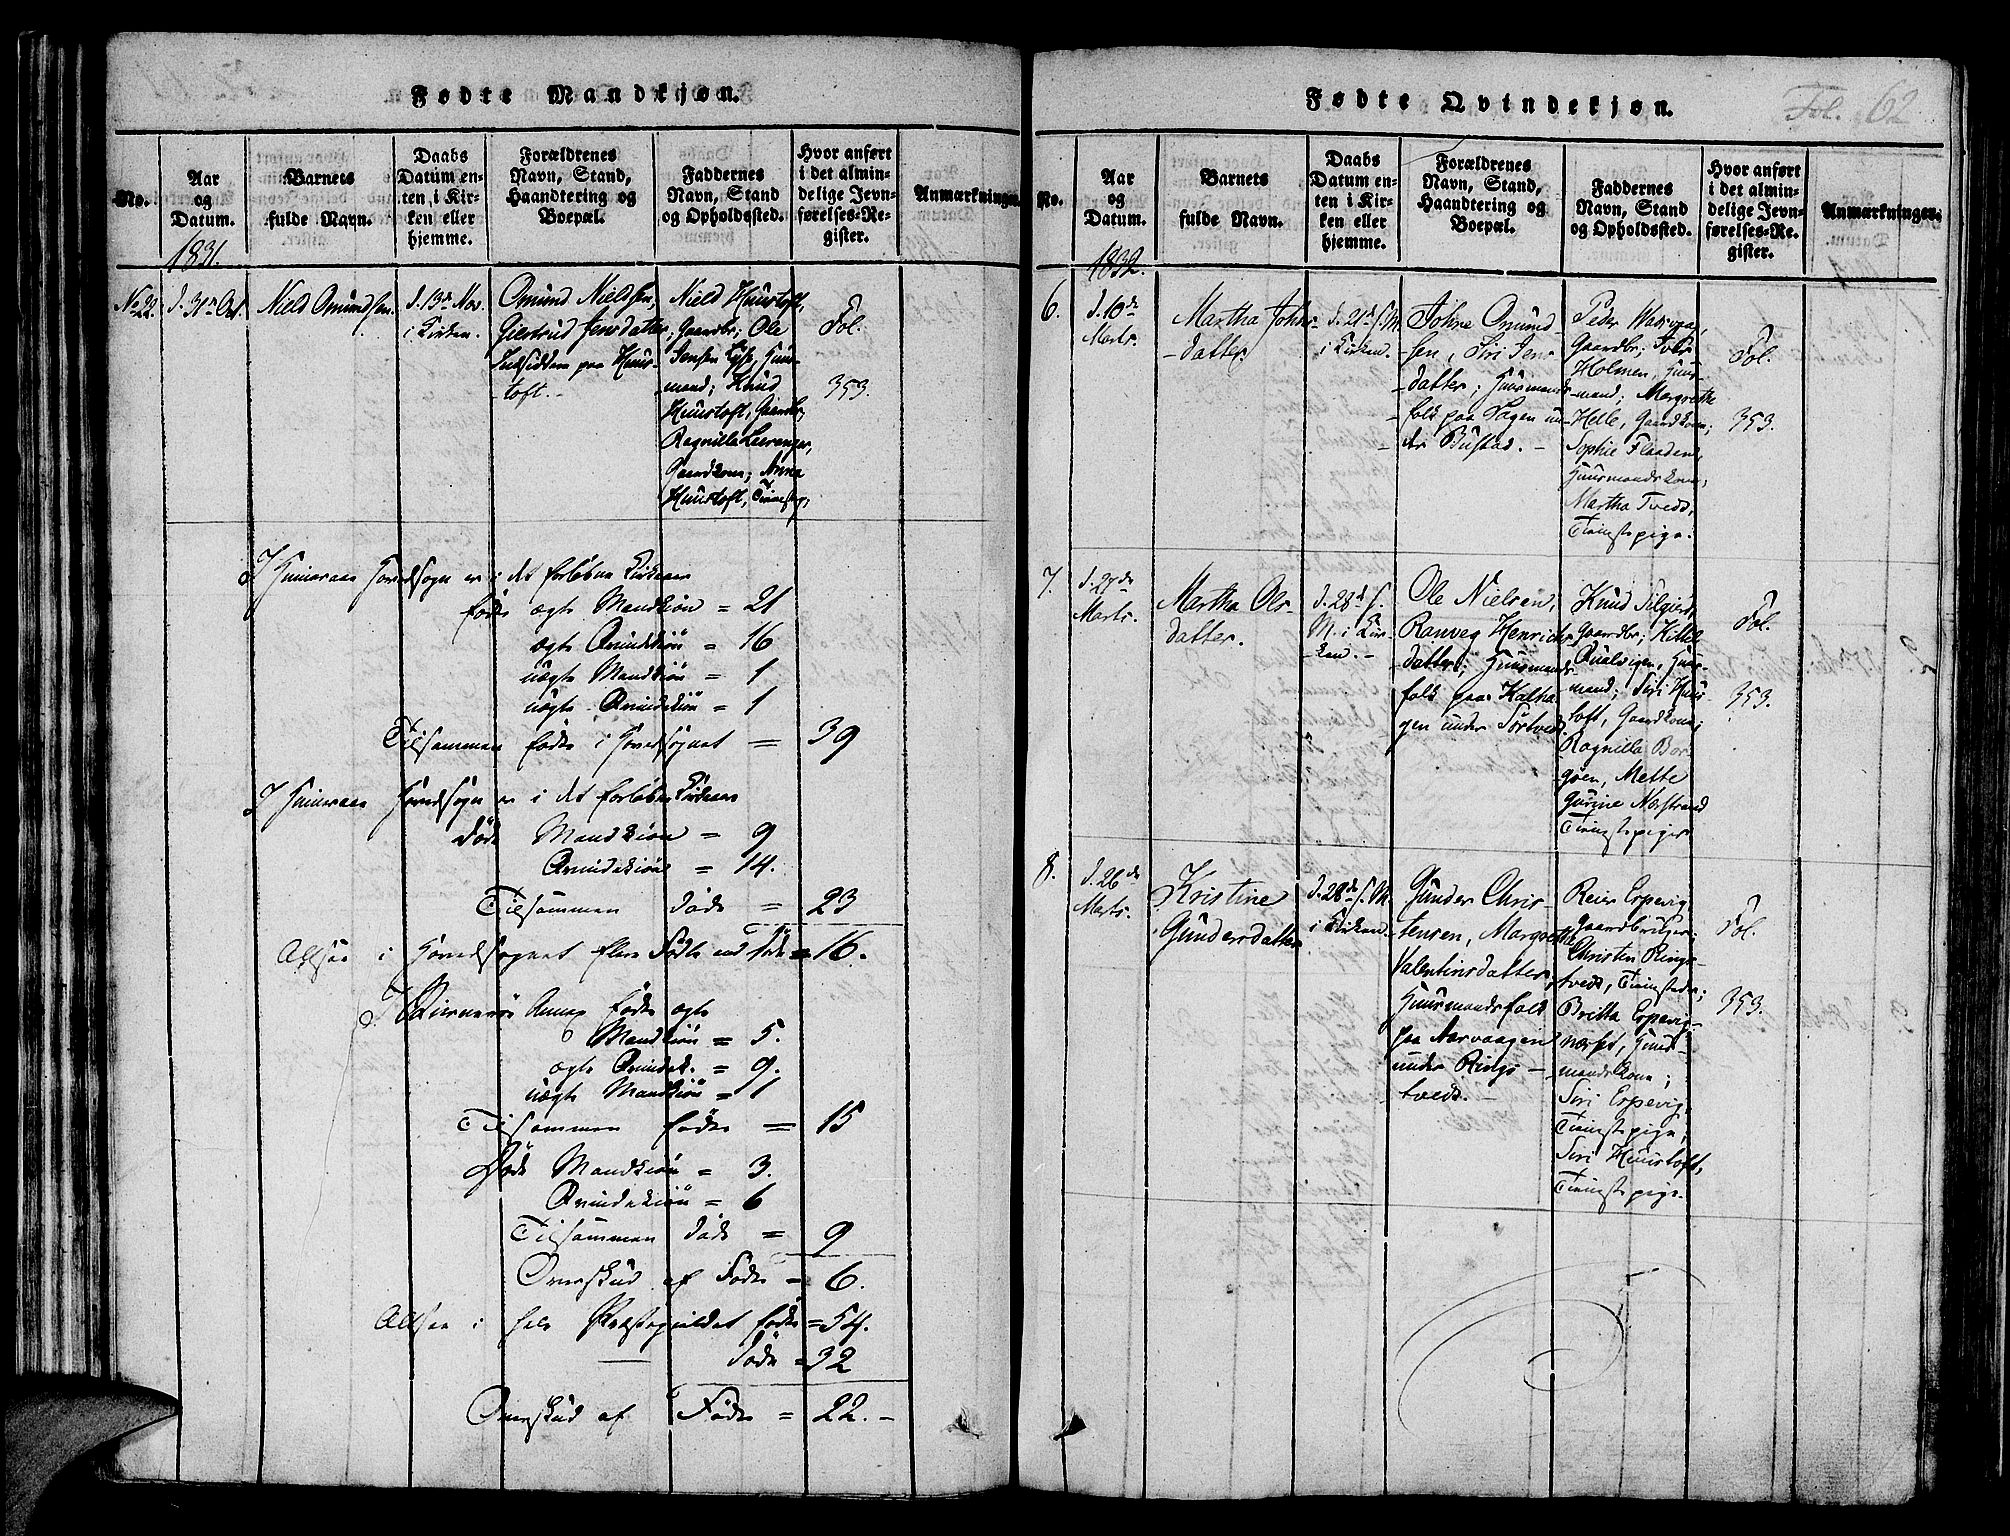 Fødte Mandkjøn.
No.
Aar
og
Datum.
Barnets
fulde Navn.
Daabs
Datum en-
ten i Kir-
ken eller
hjemme.
Forældrenes
Navn, Stand,
Haandtering og
Boepæl.
Faddernes
Navn, Stand
og Opholdssted.
Hvor anført
i det almin-
delige Jevn-
førelses-Re-
gister.
Anmærkninger.
1831.
No 22.
d. 31te Oct.
Nield Omundsen.
d. 13de Nov.
i Kirken.
Omund Nielsen,
Giertrud Jensdatter,
Indsidden paa Huus-
toft.-
Nield Huustoft,
Gaardbr; Ole
Jensen, Huus-
mand; Knud
Huustoft, Gaardbr,
Ragnille Leeranger,
Gaardkone; Anna
Huustoft, Tienestep.
Fol.
353.
I Hinneraae Hovedsogn er i det forløbne Kirkeaar
fødte ægte Mandkiøn = 21
ægte Qvindekiøn = 16
uægte Mandkiøn = 1
uægte Qvindekiøn = 1
Tilsammen fødte i Hovedsognet = 39
I Hinneraae Hovedsogn er i det forløbne Kirkeaar
Døde Mandkiøn = 9
Qvindekiøn = 14.
Tilsammen døde = 23
Altsaa i Hovedsognet flere Fødte end døde = 16.
I Annex fødte ægte
Mandkiøn = 5.
ægte Qvindek. = 9.
uægte Mandkiøn = 1
Tilsammen fødte = 15
Døde Mandkiøn = 3.
Qvindekiøn = 6
Tilsammen døde = 9
Overskud af Fødte = 6.
Altsaa i hele Præstegieldet fødte = 54.
døde = 32
Overskud af Fødte = 22.-
Fødte Qvindekjøn.
Fol. 62
No.
Aar
og
Datum.
Barnets
fulde Navn.
Daabs
Datum en-
ten i Kir-
ken eller
hjemme.
Forældrenes
Navn, Stand,
Haandtering og
Boepæl.
Faddernes
Navn, Stand
og Opholdssted.
Hvor anført
i det almin-
delige Jevn-
førelses-Re-
gister.
Anmærkninger.
1832.
6.
d. 10de
Marts.
Martha Johns-
datter.
d. 21de s. M.
i Kirken.
Johne Omund-
sen, Siri Jens-
datter; Huusmands-
folk paa Hagen un-
der Bustad.-
Peder
Gaardbr; Iver
Holmen, Huus-
mand; Margrethe
Helle, Gaardkone;
Sophie Flaaden,
Huusmandskone,
Martha Tvedt,
Tienestepige.
Fol.
353.
7.
d. 27de
Marts.
Martha Ols-
datter.
d. 28de s.
M. i Kir-
ken.-
Ole Nielsen,
Ranveg Henrichs-
datter; Huusmands-
folk paa Kalha-
gen under Sørtvedt.
Knud Tilgierd,
Gaardbr; Kittel
Qualvigen, Huus-
mand; Siri Huus-
toft, Gaardkone;
Ragnilla Bor-
gøen, Mette
Gurine Nærstrand
Tienestepiger
Fol.
353.
8.
d. 26de
Marts.
Kristine
Gundersdatter
d. 28de s. M.
i Kirken.
Gunder Chris-
tensen, Margrethe
Valentinsdatter,
Huusmandsfolk
paa Narvaagen
under Rings-
tvedt.-
Reier Erpevig
Gaardbruger;
Christen Rings-
tvedt, Tienestedr;
Britta Erpevig-
næsset, Huus-
mandskone;
Siri Erpevig,
Tienstepige,
Siri Huustoft,
Tienstepige
Fol.
353.